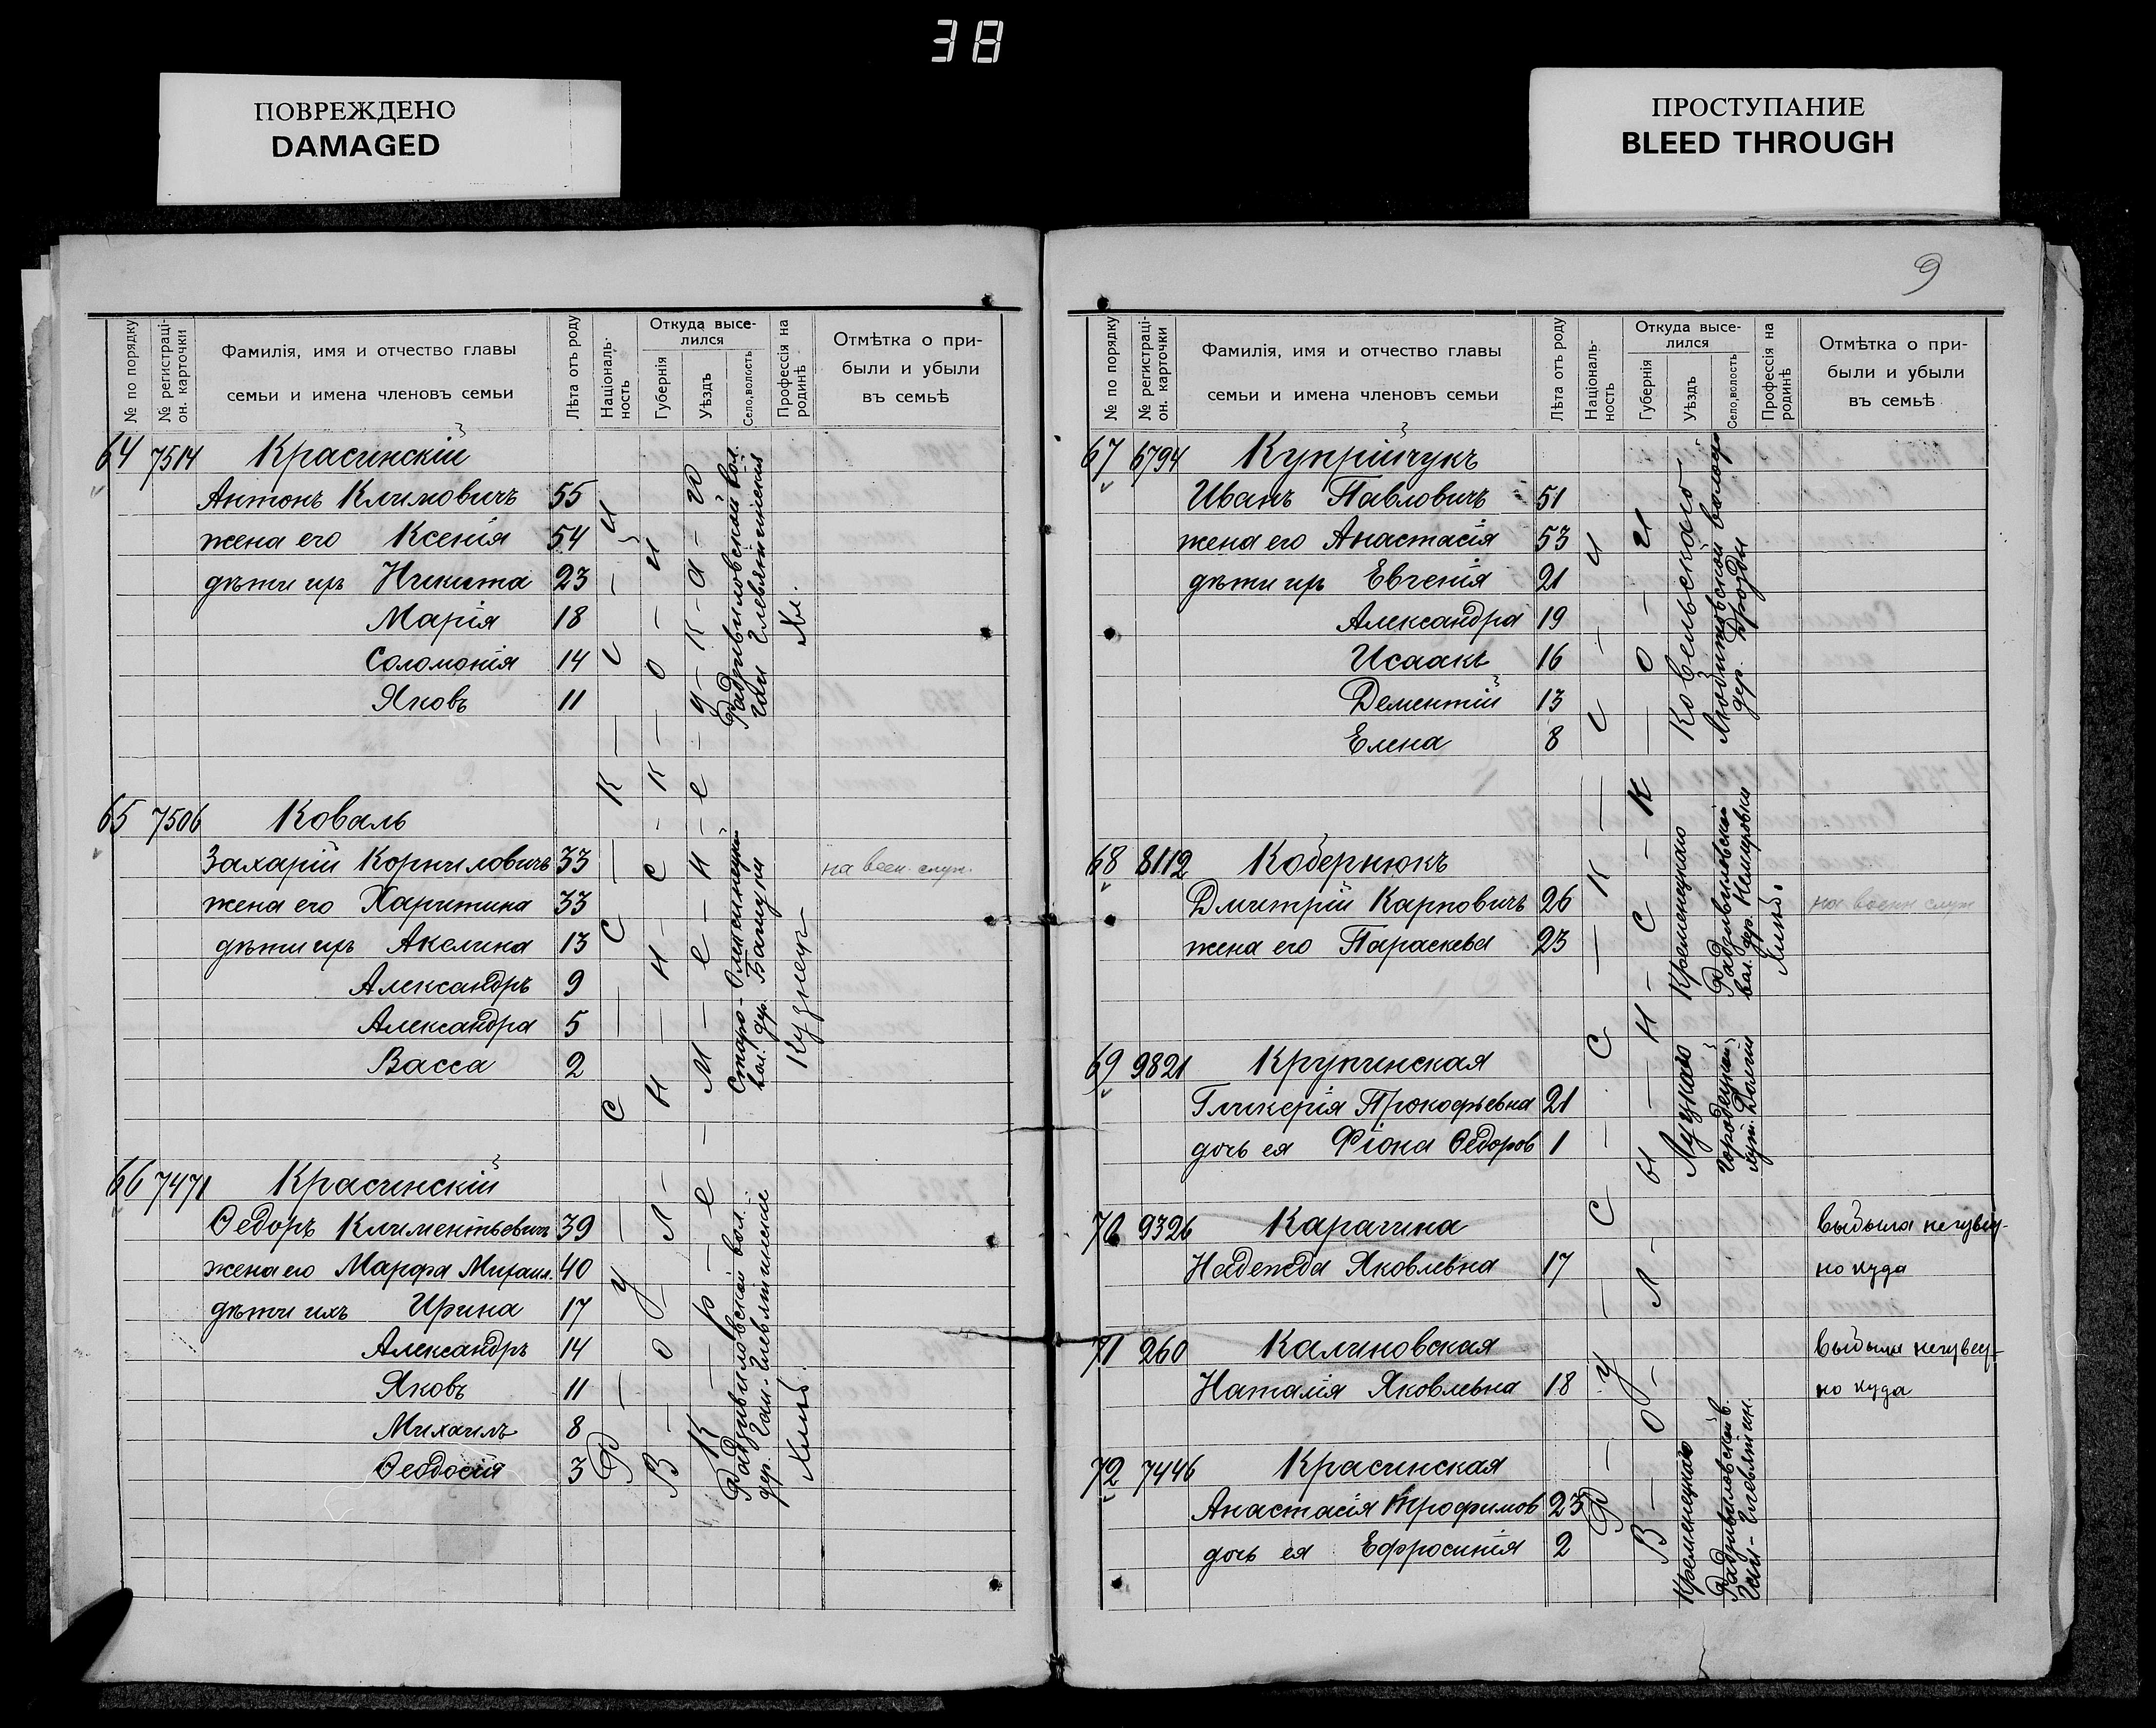 38
ПОВРЕЖДЕНО
DAMAGED
ПРОСТУПАНИЕ
BLEED THROUGH
№ по порядку
№ регистраці-
он. карточки
Фамилія, имя и отчество главы
семьи и имена членовъ семьи
Лѣта отъ роду
Національ-
ность
Откуда высе-
лился
Губернія
Уѣздъ
Село, волость
Профессія на
родинѣ
Отмѣтка о при-
были и убыли
въ семьѣ
64 7514 Красинскій
Антонъ Климовичъ 55
жена его Ксенія 54
дѣти ихъ Никита 23
Марія 18
Соломонія 14
Яковъ 11
Радзивиловской вол.
Хл.
65 7506 Коваль
Захарій Корниловичъ 33 на воен. служ.
жена его Харитина 33
дѣти ихъ Акелина 13
Александръ 9
Александра 5
Васса 2
Старо-Олексинецкой
вол. дер.
Кузнецъ
66 7471 Красинскій
Ѳедоръ Климентьевичъ 39
жена его Марфа Михаил. 40
дѣти ихъ Ирина 17
Александръ 14
Яковъ 11
Михаилъ 8
Ѳеодосія 3
Радзивиловской вол.
Хлѣб.
Русскій
Волынской
Кременецкаго
9
№ по порядку
№ регистраці-
он. карточки
Фамилія, имя и отчество главы
семьи и имена членовъ семьи
Лѣта отъ роду
Національ-
ность
Откуда высе-
лился
Губернія
Уѣздъ
Село, волость
Профессія на
родинѣ
Отмѣтка о при-
были и убыли
въ семьѣ
67 6794 Купрійчукъ
Иванъ Павловичъ 51
жена его Анастасія 53
дѣти ихъ Евгенія 21
Александра 19
Исаакъ 16
Дементій 13
Елена 8
Ковельскаго
дер.
68 8112 Кобернюкъ
Дмитрій Карповичъ 26 на воен служ
жена его Параскева 23
Кременецкаго
Радзивиловской
вол. дер. Немировки
Хлѣб.
69 9821 Крупинская
Гликерія Прокофьевна 21
дочь ея Фіона Ѳедоров 1
Луцкаго
Городецкой
70 9326 Карагина выбыла неизвѣст-
Надежда Яковлевна 17 но куда
71 260 Калиновская выбыла неизвѣст-
Наталія Яковлевна 18 но куда
72 7446 Красинская
Анастасія Трофимов 23
дочь ея Ефросинія 2
Кременецкаго
Радзивиловской в.
Русскій
Волынской